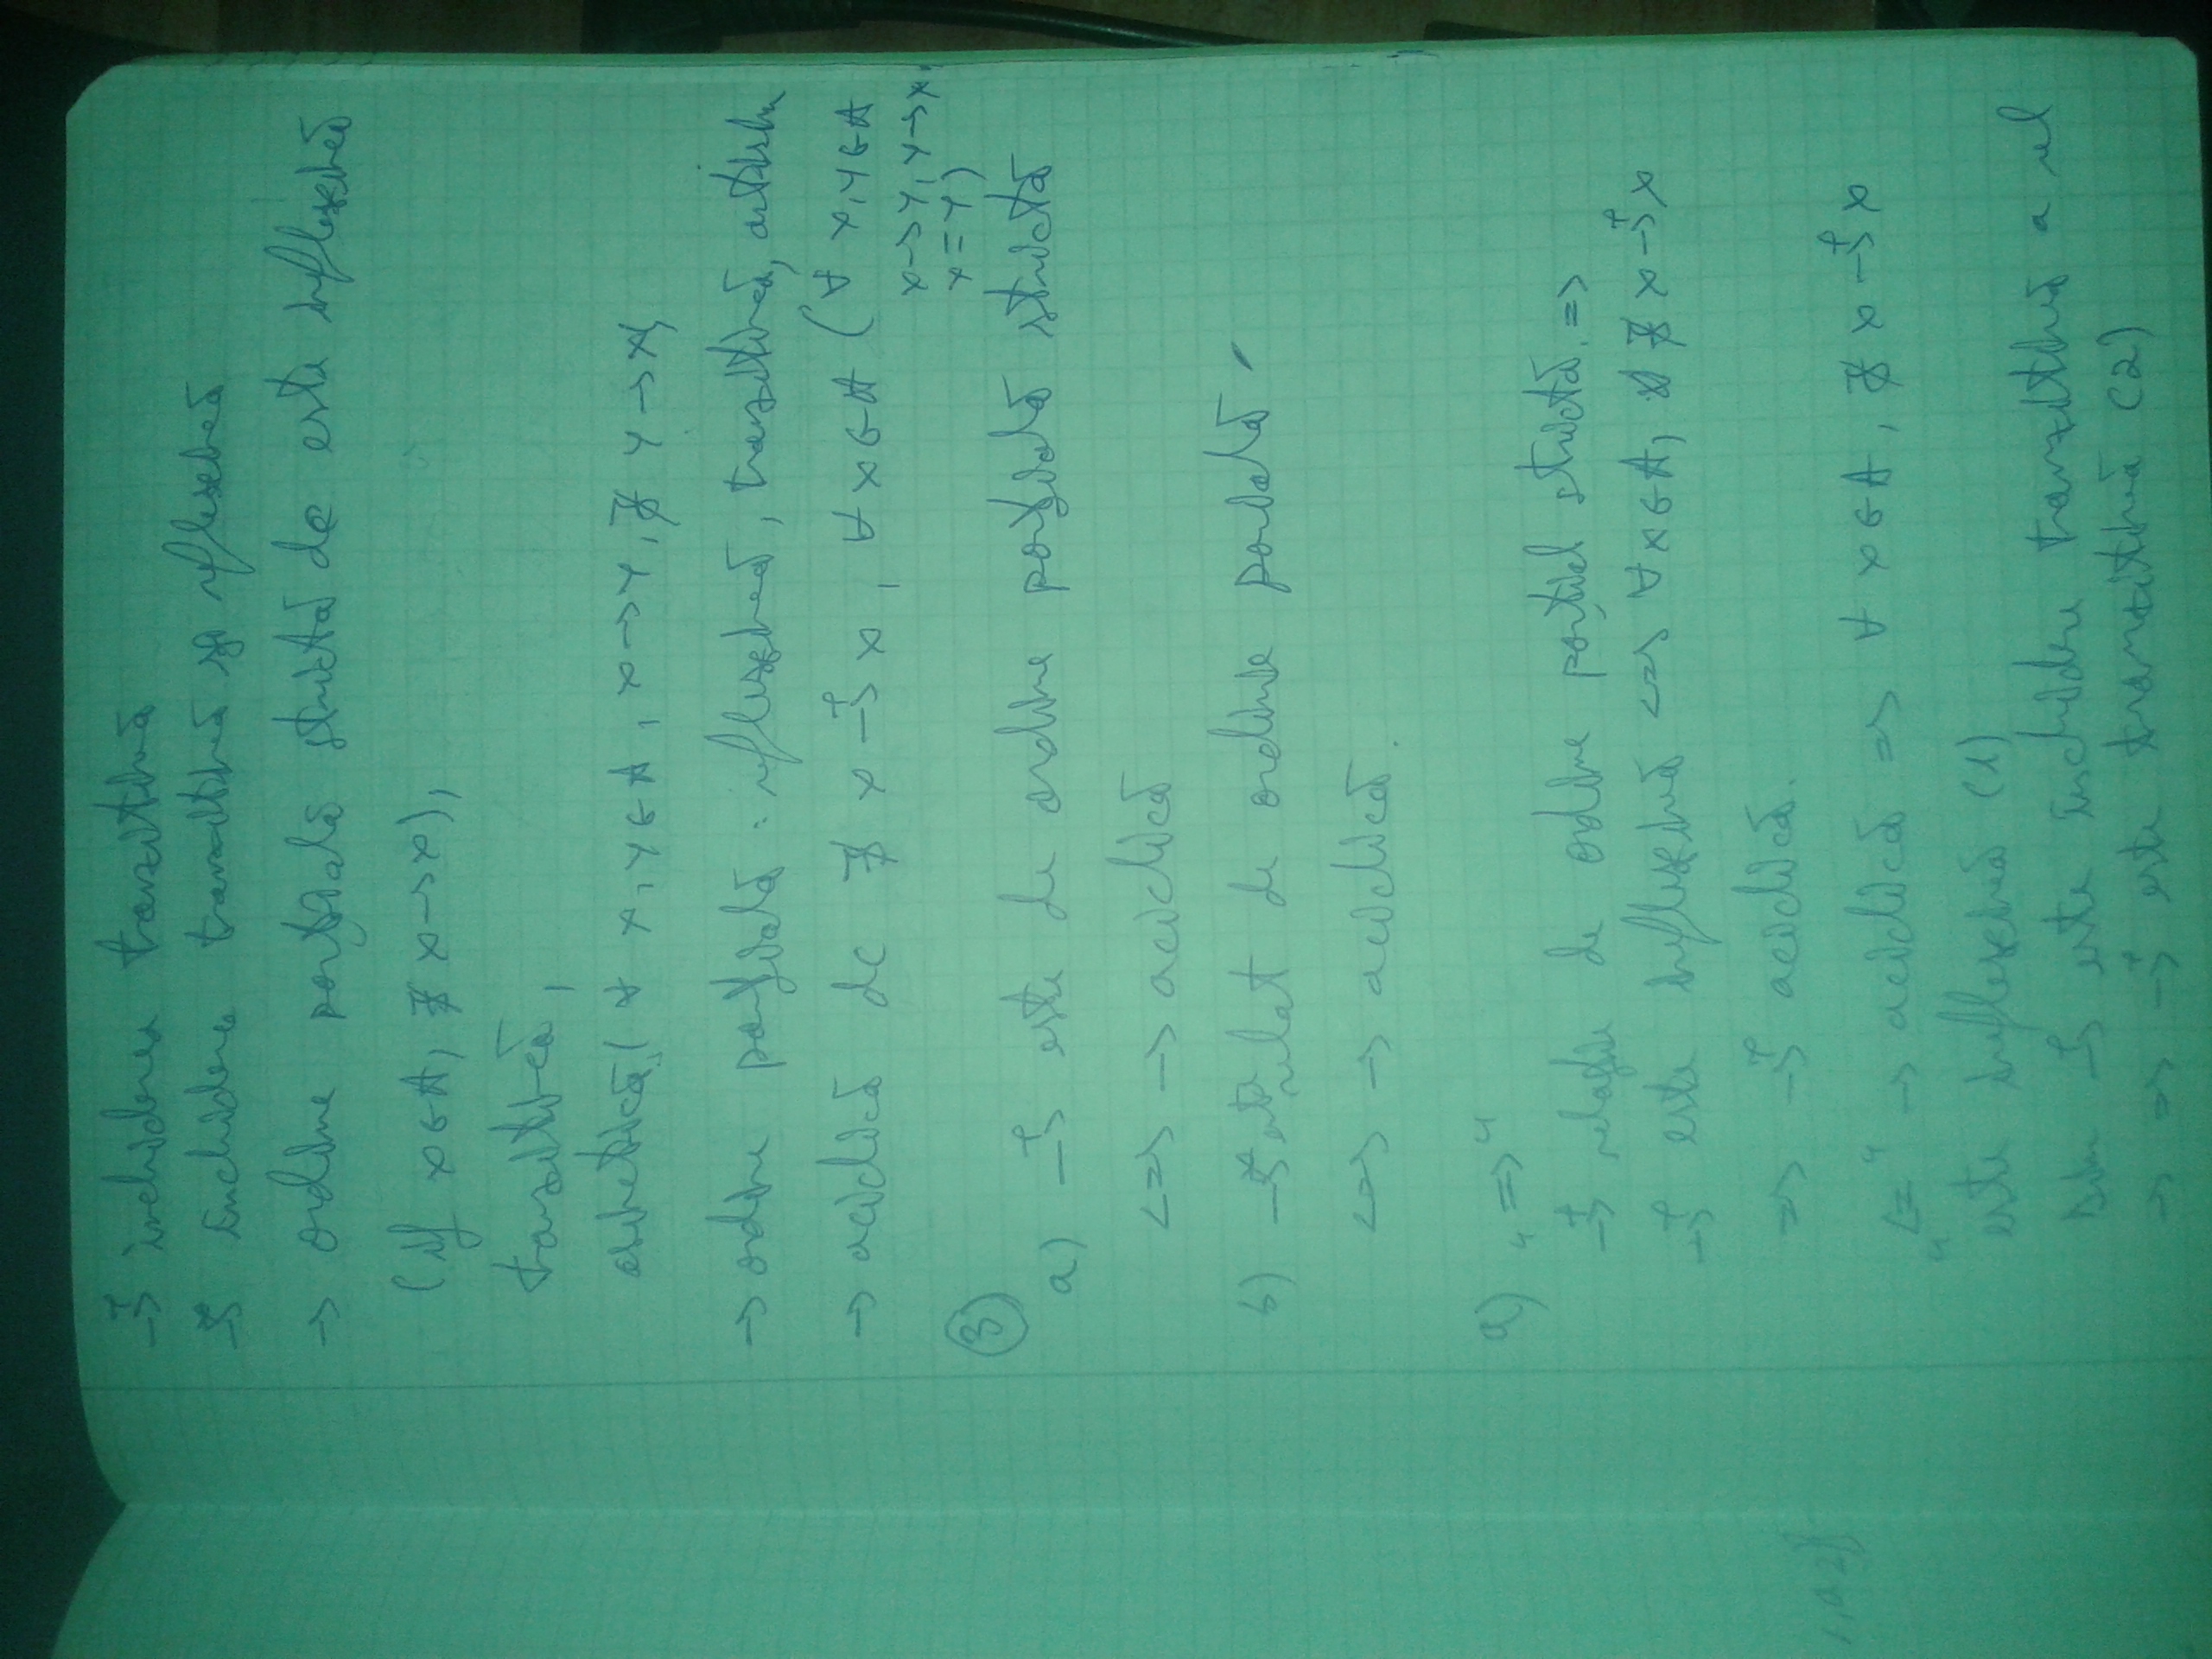 →⁺ inchiderea tranzitivă
→* închiderea tranzitivă și reflexivă
→ ordine parțială strictă dc este ireflexivă
(if x∈A, ∄ x→x),
tranzitivă,
asimetrică, (∀ x, y∈A, x→y, ∄ y→x)
→ ordine parțială : reflexivă, tranzitivă, antisim
→ aciclică dc ∄ x →⁺ x, ∀ x∈A (∀ x, y∈A
x→y, y→x
x=y)
③
a) →⁺ este de ordine parțială strictă
<=> → aciclică
b) →* relat de ordine parțială
<=> → aciclică.
a) „=>"
→⁺ relație de ordine parțial strictă, =>
→⁺ este ireflexivă <=> ∀x∈A, ∄ x →⁺ x
=> →⁺ aciclică.
„<=" → aciclică => ∀ x∈A, ∄ x →⁺ x
este ireflexivă (1)
Dim →⁺ este închidere tranzitivă a rel
→ => →⁺ este tranzitivă (2)